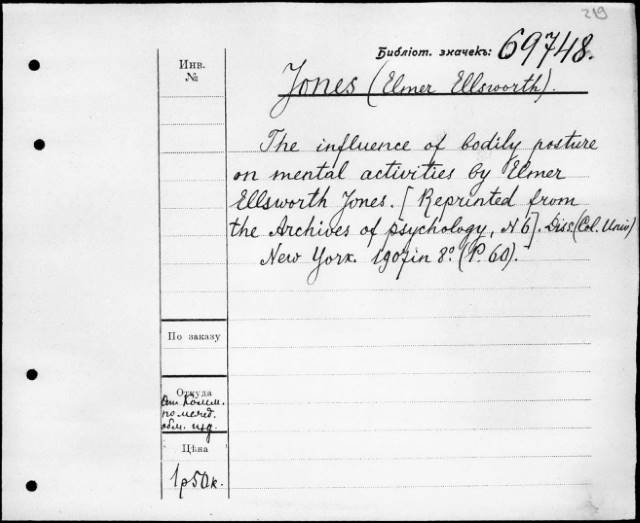 219
Библіот. значекъ: 69748.
Инв.
№
Jones (Elmer Ellsworth).
The influence of bodily posture
on mental activities by Elmer
Ellsworth Jones. [Reprinted from
the Archives of psychology, N 6]. Diss. (Col. Univ)
New York. 1907 in 8º. (P. 60).
По заказу
Откуда
От Комм.
по межд.
обм. изд.
Цѣна
1 р 50 к.